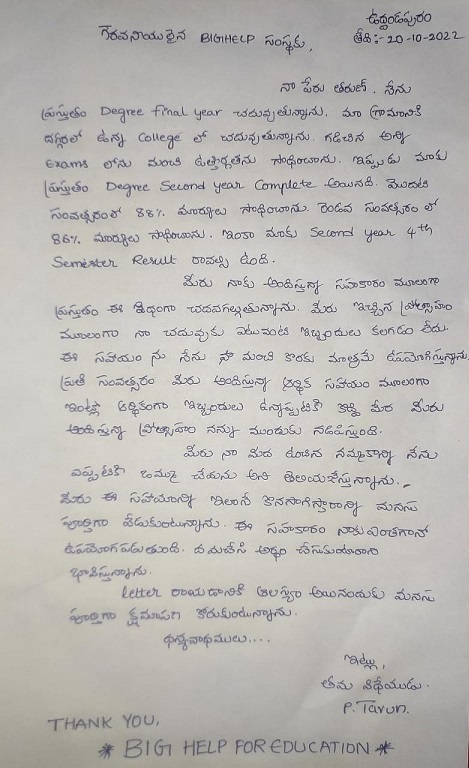 ఉద్దండపురం
తేది:- 20-10-2022
గౌరవనీయులైన BIGHELP సంస్థకు,
నా పేరు తరుణ్. నేను
ప్రస్తుతం Degree final year చదువుతున్నాను. మా గ్రామానికి
దగ్గరలో ఉన్న College లో చదువుతున్నాను. గడిచిన అన్ని
Exams లోను మంచి ఉత్తీర్ణతను సాధించాను. ఇప్పుడు మాకు
ప్రస్తుతం Degree Second year Complete అయినది. మొదటి
సంవత్సరంలో 88% మార్కులు సాధించాను. రెండవ సంవత్సరం లో
86% మార్కులు సాధించాను. ఇంకా మాకు Second year 4th
Semester Result రావల్సి ఉంది.
మీరు నాకు అందిస్తున్న సహకారం మూలంగా
ప్రస్తుతం ఈ విధంగా చదవగల్గుతున్నాను. మీరు ఇచ్చిన ప్రోత్సాహం
మూలంగా నా చదువుకు ఎటువంటి ఇబ్బందులు కలగడం లేదు.
ఈ సహాయం ను నేను నా మంచి కొరకు మాత్రమే ఉపయోగిస్తున్నాను.
ప్రతి సంవత్సరం మీరు అందిస్తున్న ఆర్థిక సహాయం మూలంగా
ఇంట్లో ఆర్థికంగా ఇబ్బందులు ఉన్నప్పటికి మీరు
అందిస్తున్న ప్రోత్సాహం నన్ను ముందుకు నడిపిస్తుంది.
మీరు నా మీద ఉంచిన నమ్మకాన్ని నేను
ఎప్పటికి ఒమ్ము చేయను అని తెలియచేస్తున్నాను.
మీరు ఈ సహాయాన్ని ఇలానే కొనసాగిస్తారాన్ని మనసు
పూర్తిగా వేడుకుంటున్నాను. ఈ సహకారం నాకు ఎంతగానో
ఉపయోగపడుతుంది. దయచేసి అర్థం చేసుకుంటారాని
భావిస్తున్నాను.
letter రాయడానికి ఆలస్యం అయినందుకు మనసు
పూర్తిగా క్షమాపణ కోరుకుంటున్నాను.
ధన్యవాధములు....
ఇట్లు,
తమ విధేయుడు.
P. Tarun.
THANK YOU,
* BIG HELP FOR EDUCATION *